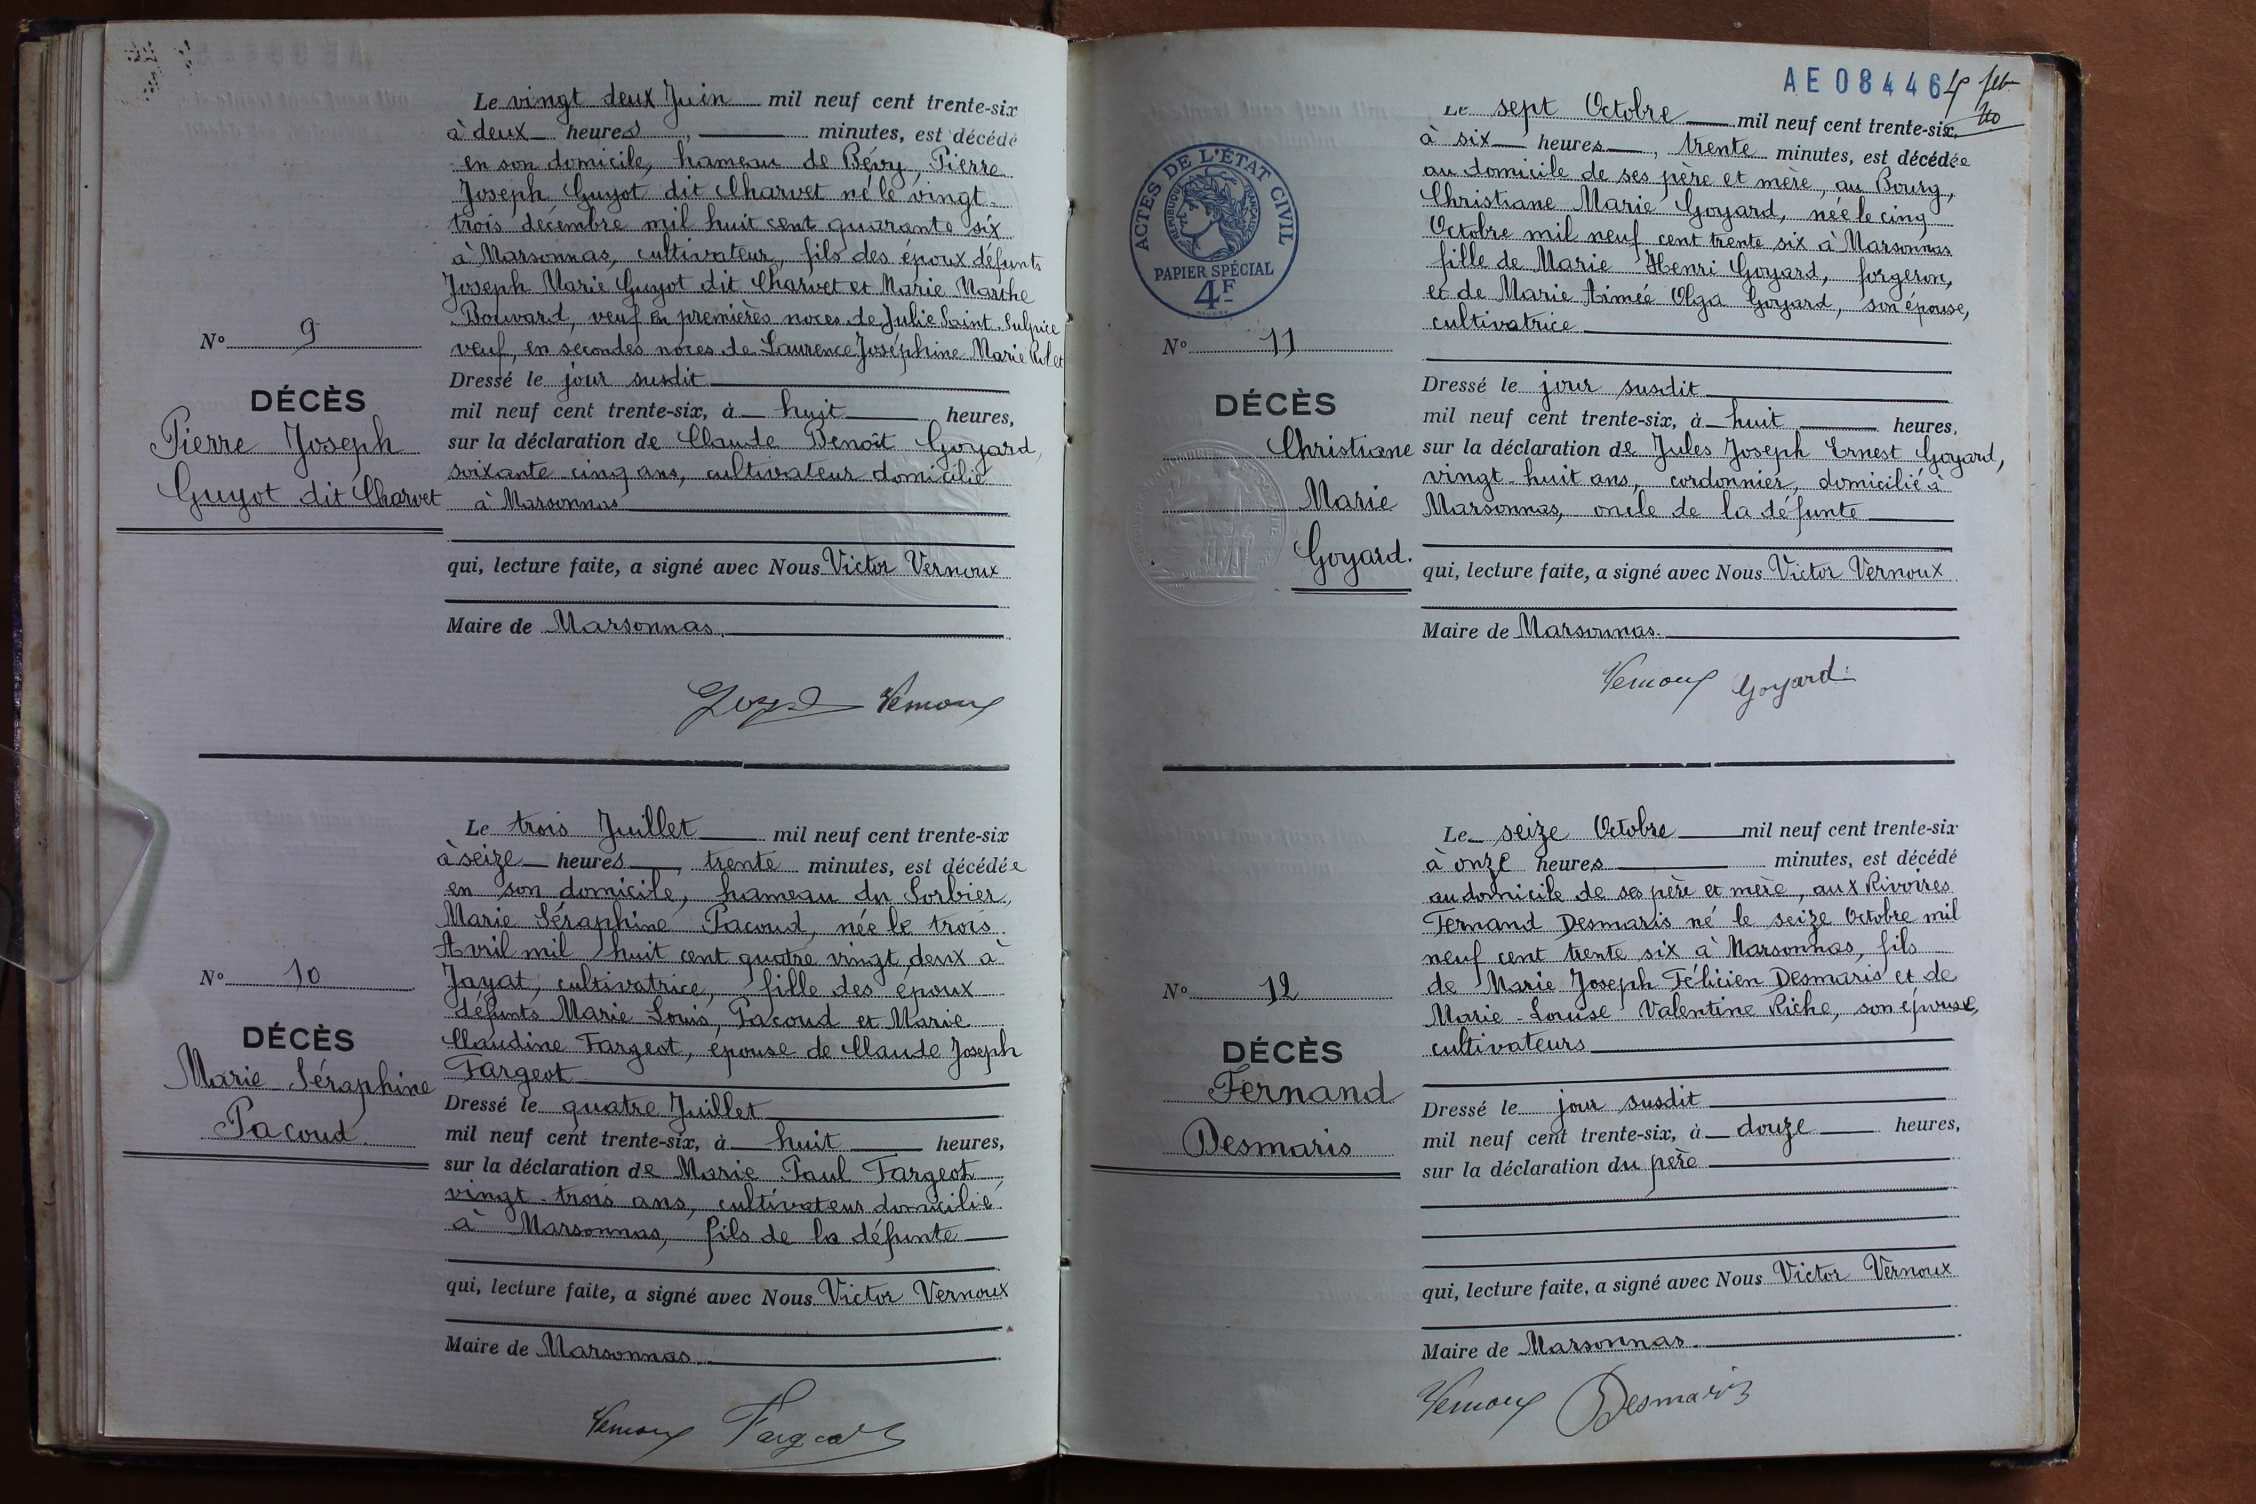 Le vingt deux Juin mil neuf cent trente-six
à deux heures, minutes, est décédé
en son domicile, hameau de Bévy, Pierre
Joseph Guyot dit Charvet né le vingt-
trois décembre mil huit cent quarante six
à Marsonnas, cultivateur, fils des époux défunts
Joseph Marie Guyot dit Charvet et Marie Marthe
Bouvard, veuf en premières noces de Julie Saint-Sulpice
veuf, en secondes noces de Laurence Joséphine Marie
Dressé le jour susdit
mil neuf cent trente-six, à huit heures,
sur la déclaration de Claude Benoît Goyard,
soixante cinq ans, cultivateur domicilié
à Marsonnas
qui, lecture faite, a signé avec Nous Victor Vernoux
Maire de Marsonnas.
Vernoux
N° 9
DÉCÈS
Pierre Joseph
Guyot dit Charvet
Le trois Juillet mil neuf cent trente-six
à seize heures, trente minutes, est décédée
en son domicile, hameau du Sorbier,
Marie Séraphine Pacoud, née le trois
Avril mil huit cent quatre vingt deux à
Jayat, cultivatrice, fille des époux
défunts Marie Louis Pacoud et Marie
Claudine Fargeot, épouse de Claude Joseph
Fargeot
Dressé le quatre Juillet
mil neuf cent trente-six, à huit heures,
sur la déclaration de Marie Paul Fargeot,
vingt-trois ans, cultivateur domicilié
à Marsonnas, fils de la défunte
qui, lecture faite, a signé avec Nous Victor Vernoux
Maire de Marsonnas
Vernoux Fargeot
N° 10
DÉCÈS
Marie Séraphine
Pacoud.
AE08446
ACTES DE L'ÉTAT CIVIL
RÉPUBLIQUE FRANÇAISE
PAPIER SPÉCIAL
4F
Le sept Octobre mil neuf cent trente-six
à six heures, trente minutes, est décédée
au domicile de ses père et mère, au Bourg,
Christiane Marie Goyard, née le cinq
Octobre mil neuf cent trente six à Marsonnas
fille de Marie Henri Goyard, forgeron,
et de Marie Aimée Olga Goyard, son épouse,
cultivatrice
Dressé le jour susdit
mil neuf cent trente-six, à huit heures,
sur la déclaration de Jules Joseph Ernest Goyard,
vingt-huit ans, cordonnier, domicilié à
Marsonnas, oncle de la défunte
qui, lecture faite, a signé avec Nous Victor Vernoux
Maire de Marsonnas.
Vernoux Goyard
N° 11
DÉCÈS
Christiane
Marie
Goyard.
Le seize Octobre mil neuf cent trente-six
à onze heures minutes, est décédé
au domicile de ses père et mère, aux Rivoires
Fernand Desmaris né le seize Octobre mil
neuf cent trente six à Marsonnas, fils
de Marie Joseph Félicien Desmaris et de
Marie-Louise Valentine Riche, son épouse,
cultivateurs
Dressé le jour susdit
mil neuf cent trente-six, à douze heures,
sur la déclaration du père
qui, lecture faite, a signé avec Nous Victor Vernoux
Maire de Marsonnas.
Vernoux Desmaris
N° 12
DÉCÈS
Fernand
Desmaris